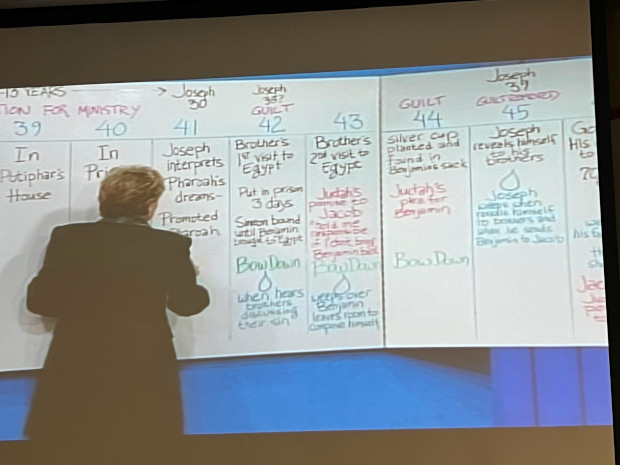 13 YEARS → Joseph
30
Joseph
GUILT
Joseph
39
GUILT
TION FOR MINISTRY
39 40 41 42 43 44 45
In
Potiphar's
House
In
Joseph
interprets
Pharoah's
dreams-
Promoted
Brother's
1st visit to
Egypt
Put in prison
3 days
Simeon bound
until Benjamin
Bow Down
when hears
brothers
discussing
their sin
Brother's
2nd visit to
Egypt
Judah's
promise to
Jacob
"hold me
responsible
if I don't bring
Benjamin back
Bow Down
weeps over
Benjamin
leaves room to
compose himself
silver cup
planted and
found in
Benjamins sack
Judah's
plea for
Benjamin
Bow Down
Joseph
reveals himself
to his
brothers
Joseph
weeps when
reveals himself
to brothers and
when he sends
Benjamin to Jacob